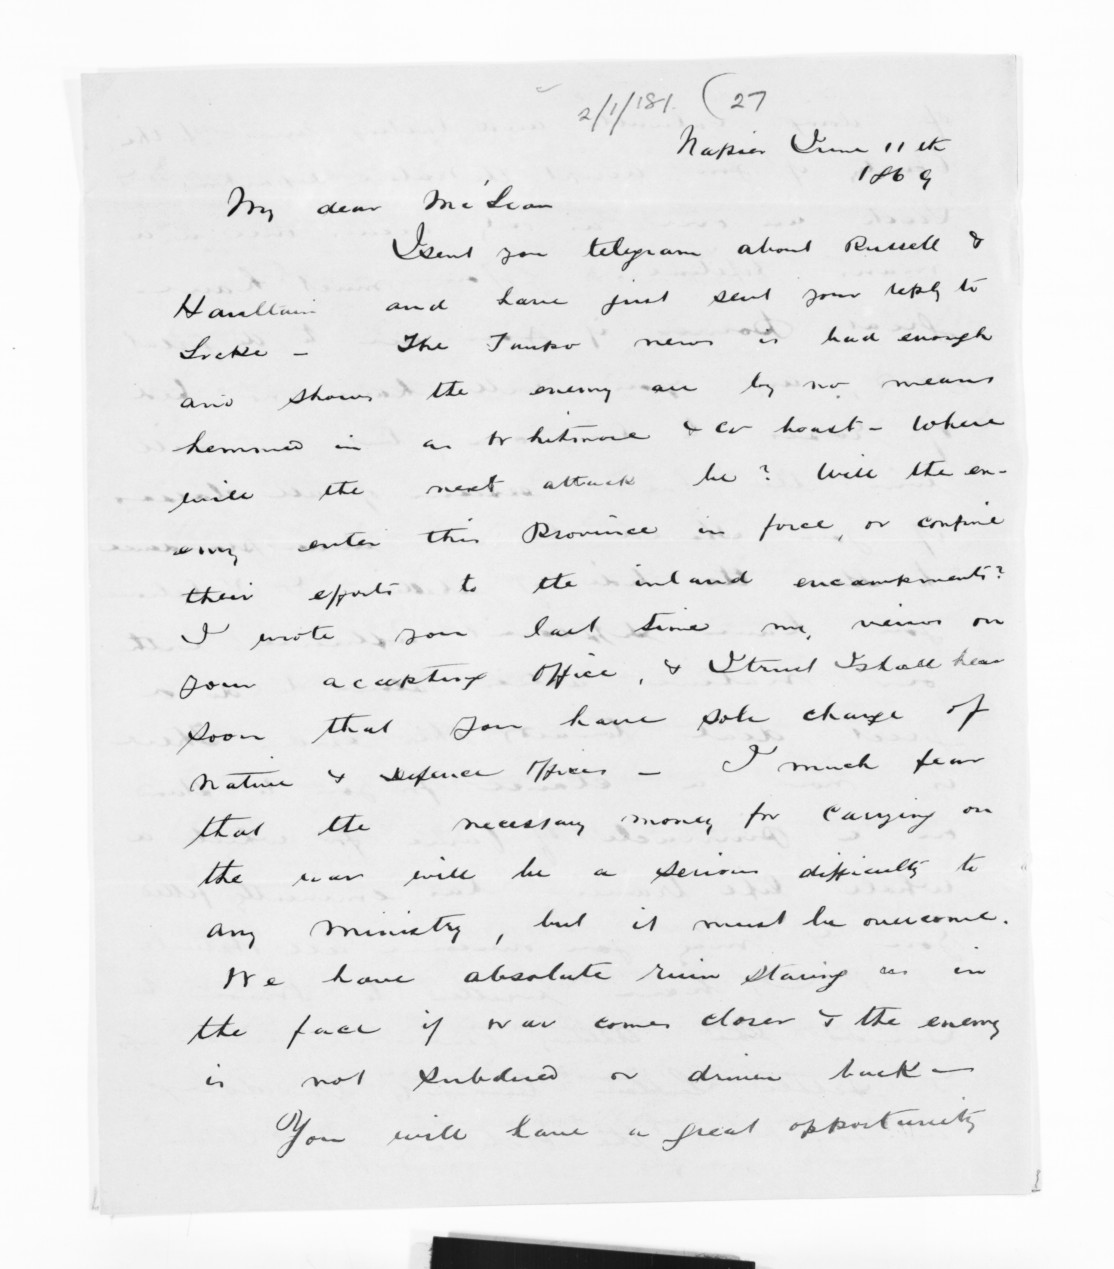 2/1/181. (27
Napier June 11th
1869
My dear McLean
I sent you telegram about Russell &
Haultain and have just sent your reply to
Locke - The Taupo news is bad enough
and shows the enemy are by no means
hemmed in as Whitmore & co boast - Where
will the next attack be? Will the en-
emy enter this Province in force, or confine
their efforts to the inland encampments?
I wrote you last time my views on
your accepting office, & I trust I shall hear
soon that you have sole charge of
Native & Defence Offices - I much fear
that the necessary money for carrying on
the war will be a serious difficulty to
any ministry, but it must be overcome.
We have absolute ruin staring us in
the face if war comes closer & the enemy
is not subdued or driven back -
You will have a great opportunity